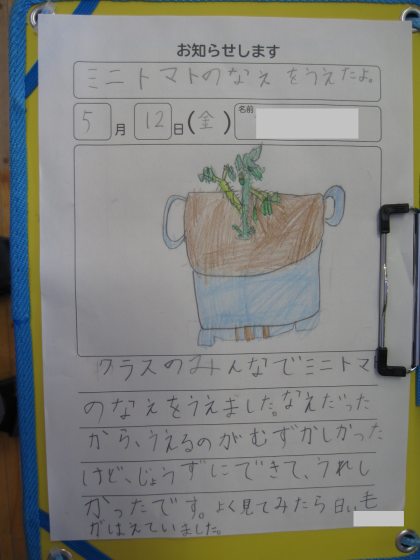 お知らせします
ミニトマトのなえをうえたよ。
5月12日(金)名前
クラスのみんなでミニトマ
のなえをうえました。なえだった
から、うえるのがむずかしかった
けど、じょうずにできて、うれし
かったです。よく見てみたら白い毛
がはえていました。